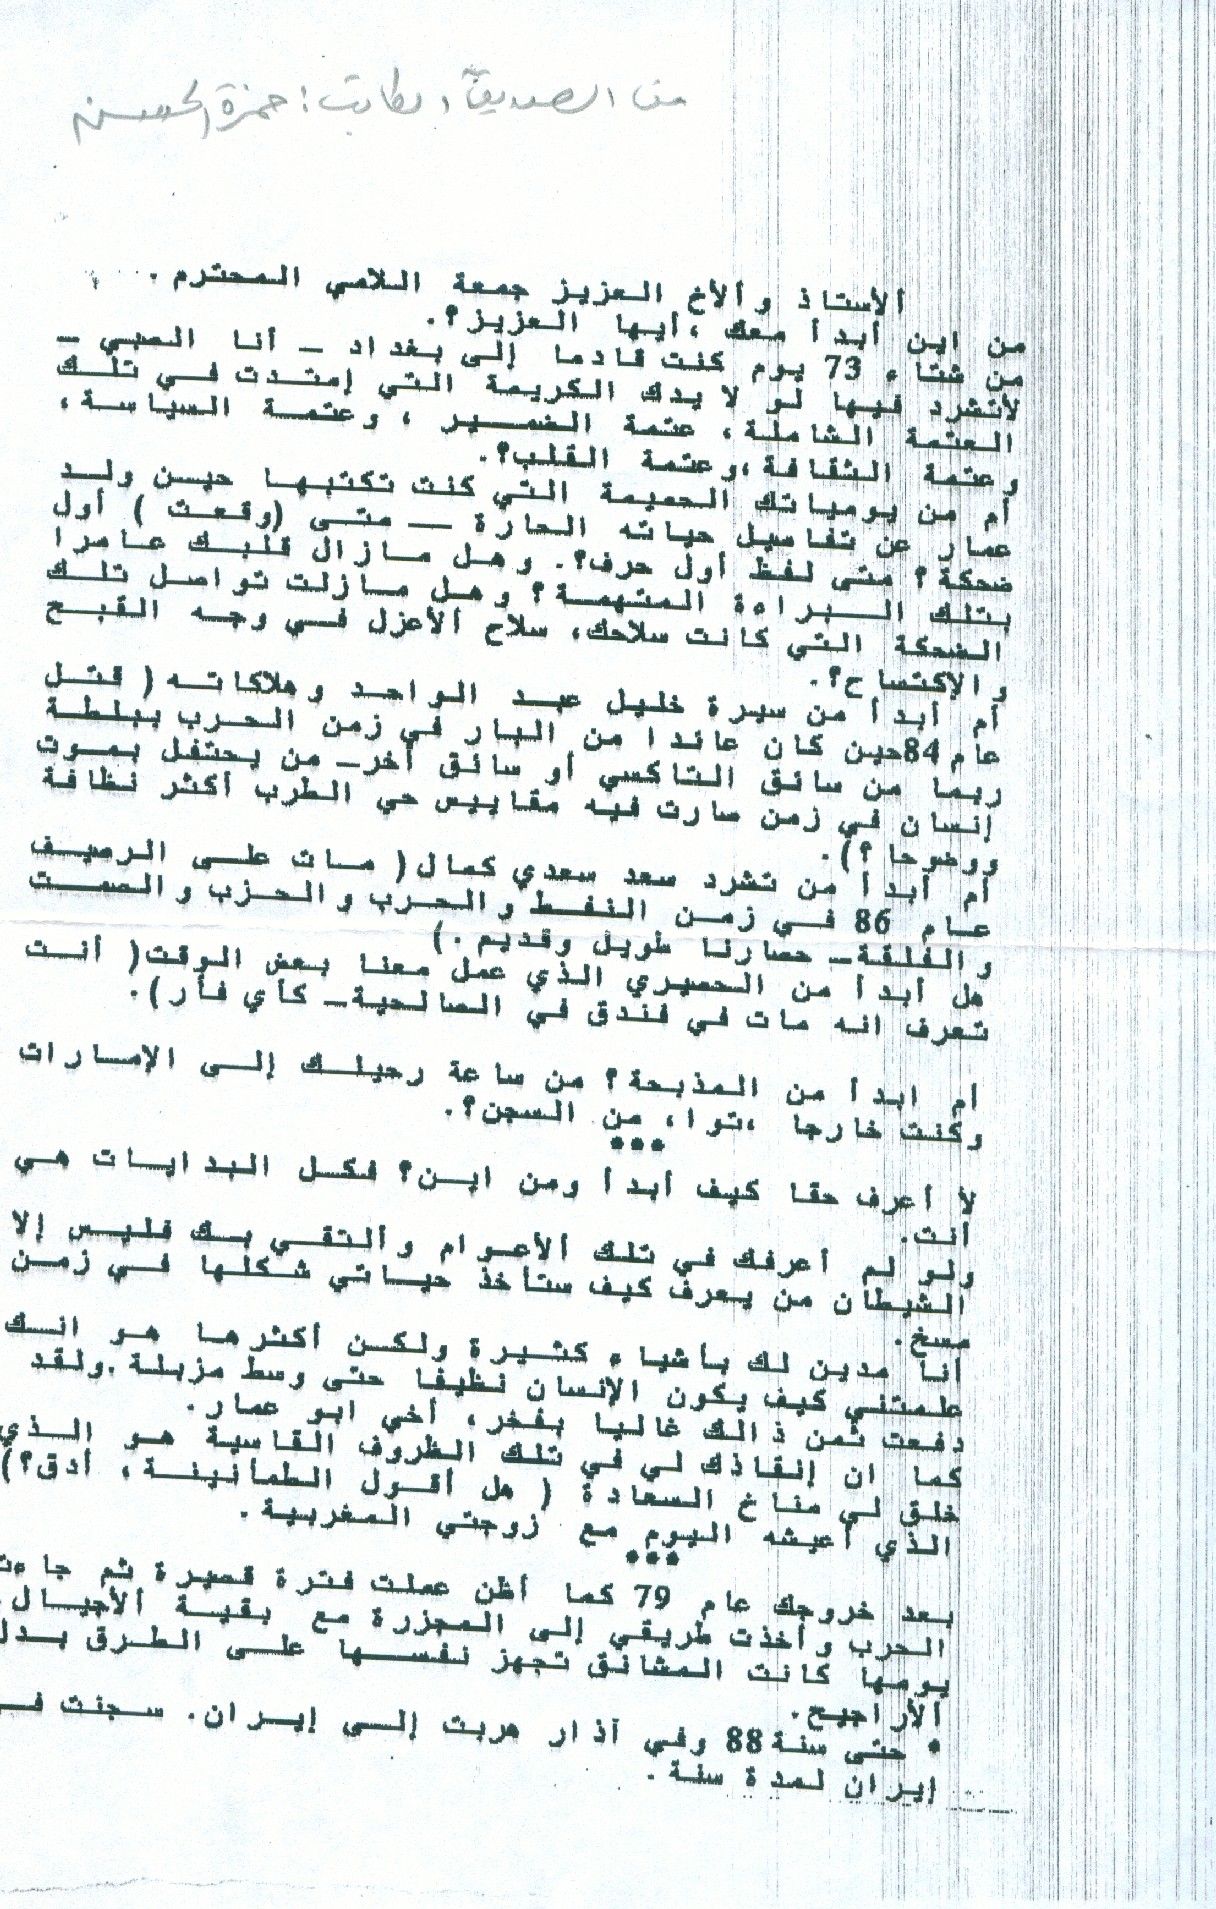 من الصديق الكاتب: حمزة الحسن
ألأستاذ وألأخ العزيز جمعة اللامي المحترم.
من اين أبدأ معك ،أيها العزيز؟.
من شتاء 73 يوم كنت قادما إلى بغداد _ أنا الصبي _
لأتشرد فيها لو لا يدك الكريمة التي إمتدت في تلك
العتمة الشاملة، عتمة الضمير ، وعتمة السياسة،
وعتمة الثقافة،وعتمة القلب؟.
أم من يومياتك الحميمة التي كنت تكتبها حيسن ولد
عمار عن تفاصيل حياته الحارة __ متى (وقعت ) أول
ضحكة؟ متى لفظ أول حرف؟. وهل مازال قلبك عامرا
بتلك البراءة المتهمة؟ وهل مازلت تواصل تلك
الضحكة التي كانت سلاحك، سلاح ألأعزل في وجه القبح
والإكتساح؟.
أم أبدأ من سيرة خليل عبد الواحد وهلاكاته( قتل
عام 84حين كان عائدا من البار في زمن الحرب ببلطة
ربما من سائق التاكسي أو سائق أخر_ من يحتفل بموت
إنسان في زمن صارت فيه مقاييس حي الطرب أكثر نظافة
ووضوحا؟).
أم أبدأ من تشرد سعد سعدي كمال( مات على الرصيف
عام 86 في زمن النفط والحرب والحزب والصمت
والفلقة_ حصارنا طويل وقديم.)
هل أبدأ من الحصيري الذي عمل معنا بعض الوقت( أنت
تعرف انه مات في فندق في الصالحية_ كأي فأر).
أم ابدأ من المذبحة؟ من ساعة رحيلك إلى الإمارات
وكنت خارجا ،توا، من السجن؟.
***
لأ أعرف حقا كيف أبدأ ومن اين؟ فكل البدايات هي
أنت.
ولو لم أعرفك في تلك ألأعوام وألتقي بك فليس إلا
الشيطان من يعرف كيف ستأخذ حياتي شكلها في زمن
مسخ.
أنا مدين لك بأشياء كثيرة ولكن أكثرها هو انك
علمتني كيف يكون الإنسان نظيفا حتى وسط مزبلة.ولقد
دفعت ثمن ذالك غاليا بفخر، أخي ابو عمار.
كما ان إنقاذك لي في تلك الظروف القاسية هو الذي
خلق لي مناخ السعادة ( هل أقول الطمأنينة، أدق؟)
الذي أعيشه اليوم مع زوجتي المغربية.
***
بعد خروجك عام 79 كما أظن عملت فترة قصيرة ثم جاءت
الحرب وأخذت طريقي إلى المجزرة مع بقية ألأجيال.
يومها كانت المشانق تجهز نفسها على الطرق بدل
ألأراجيح.
* حتى سنة 88 وفي آذار هربت إلى إيران. سجنت في
إيران لمدة سنة.